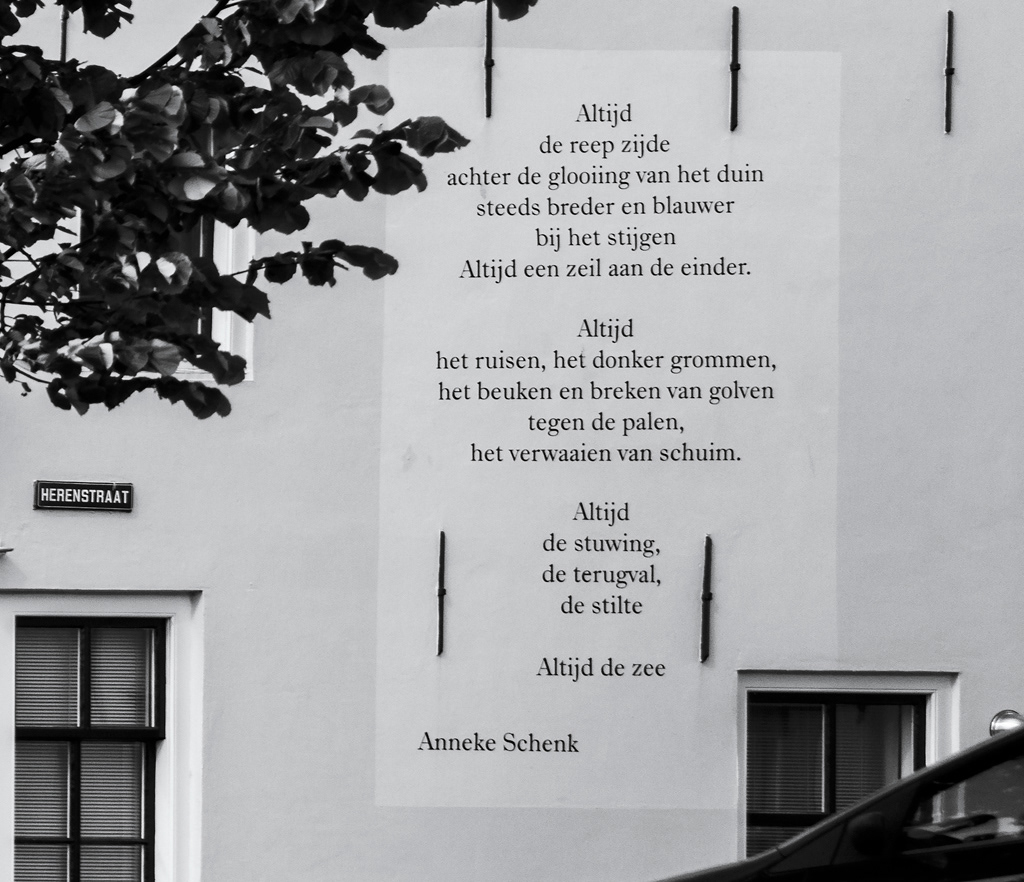 Altijd
de reep zijde
achter de glooiing van het duin
steeds breder en blauwer
bij het stijgen
Altijd een zeil aan de einder.
Altijd
het ruisen, het donker grommen,
het beuken en breken van golven
tegen de palen,
het verwaaien van schuim.
HERENSTRAAT
Altijd
de stuwing,
de terugval,
de stilte
Altijd de zee
Anneke Schenk